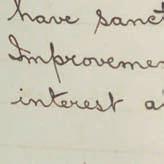 have sanct
Improvemen
interest a